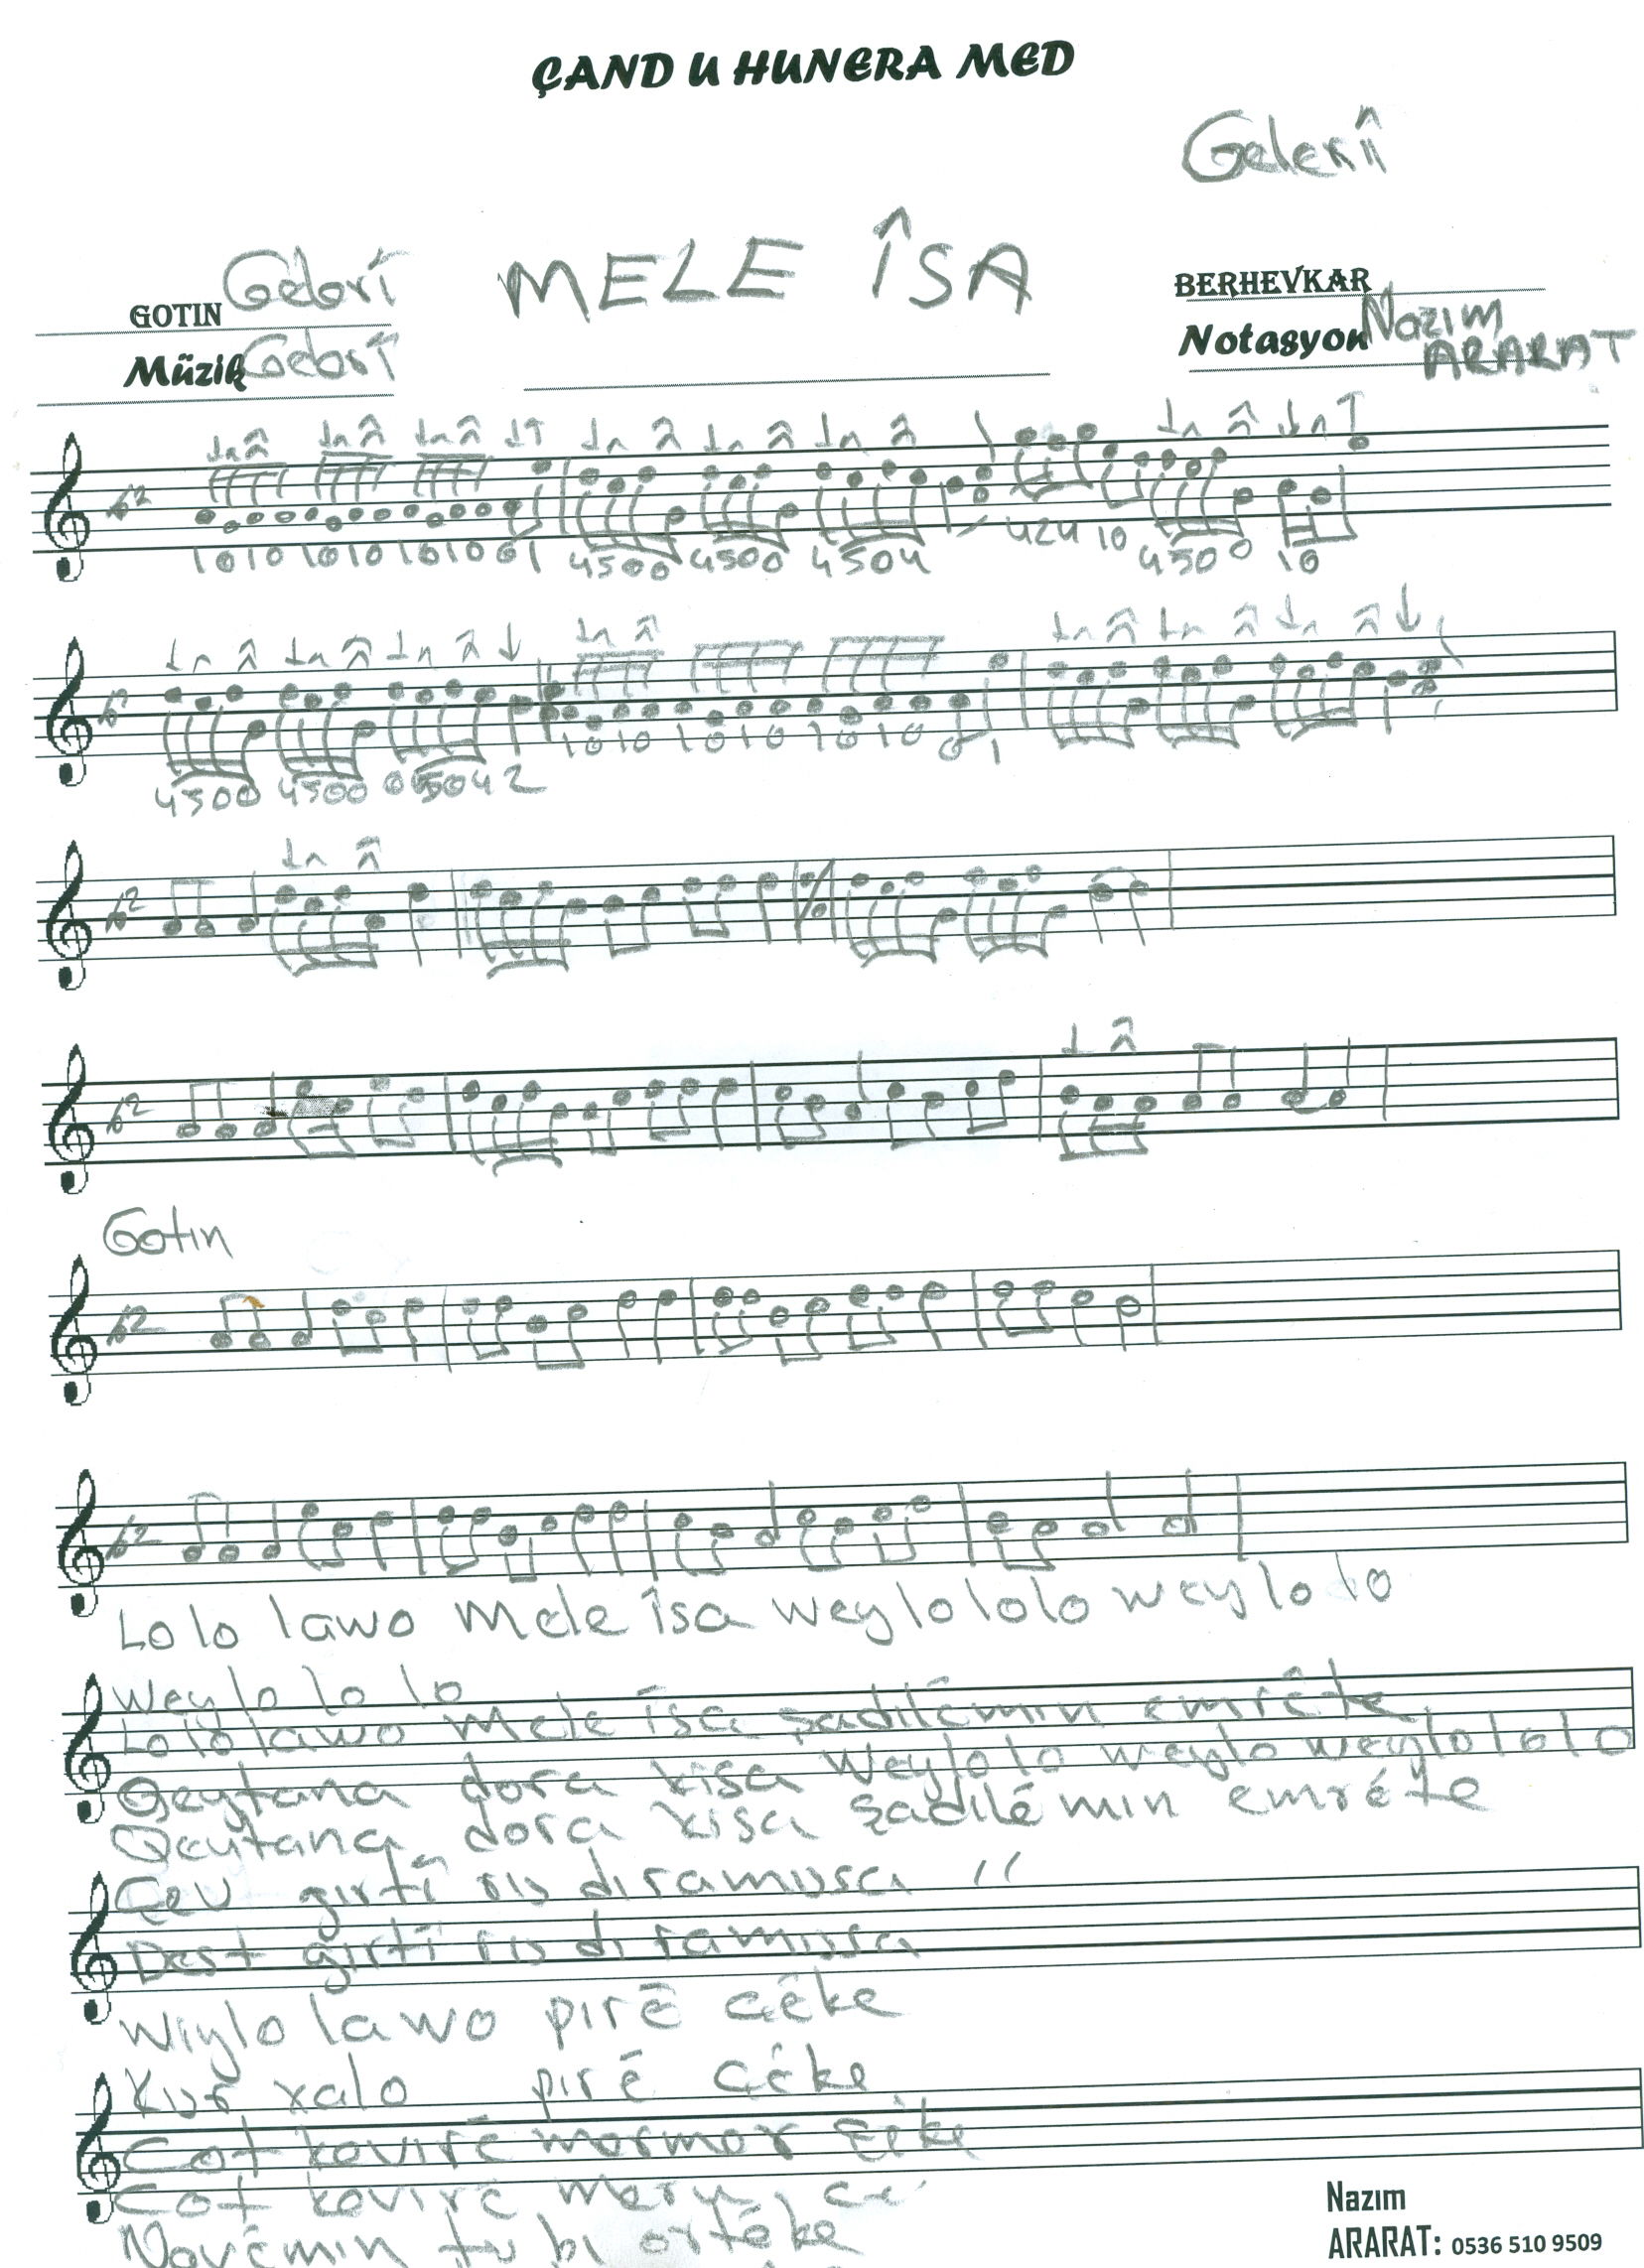 ÇAND U HUNERA MED
Gelerîi
MELE ÎSA
GOTIN Gelerî
Müzik Gelerî
BERHEVKAR
Notasyon Nazım
ARARAT
1010 1010 1010 01 4500 4500 4504 424 10 4500 10
4500 4500 5042 1010 1010 1010 01
Gotin
Lo lo lawo Mele Îsa weylololo weylo lo
weylo lo lo
Lo lo lawo Mele Îsa şadılêmin emrête
Qeytana dora xisa weylolo weylo weylololo
Qeytana dora xisa şadılê min emrête
Çev girtî ris di ramusa "
Dest girtî ris di ramusa
Wiylo lawo pirê çêke
Kur xalo pirê çêke
Cot kevirê mermer çêke
Cot kevirê
Navêmin tu bi ortêke
Nazım
ARARAT: 0536 510 9509